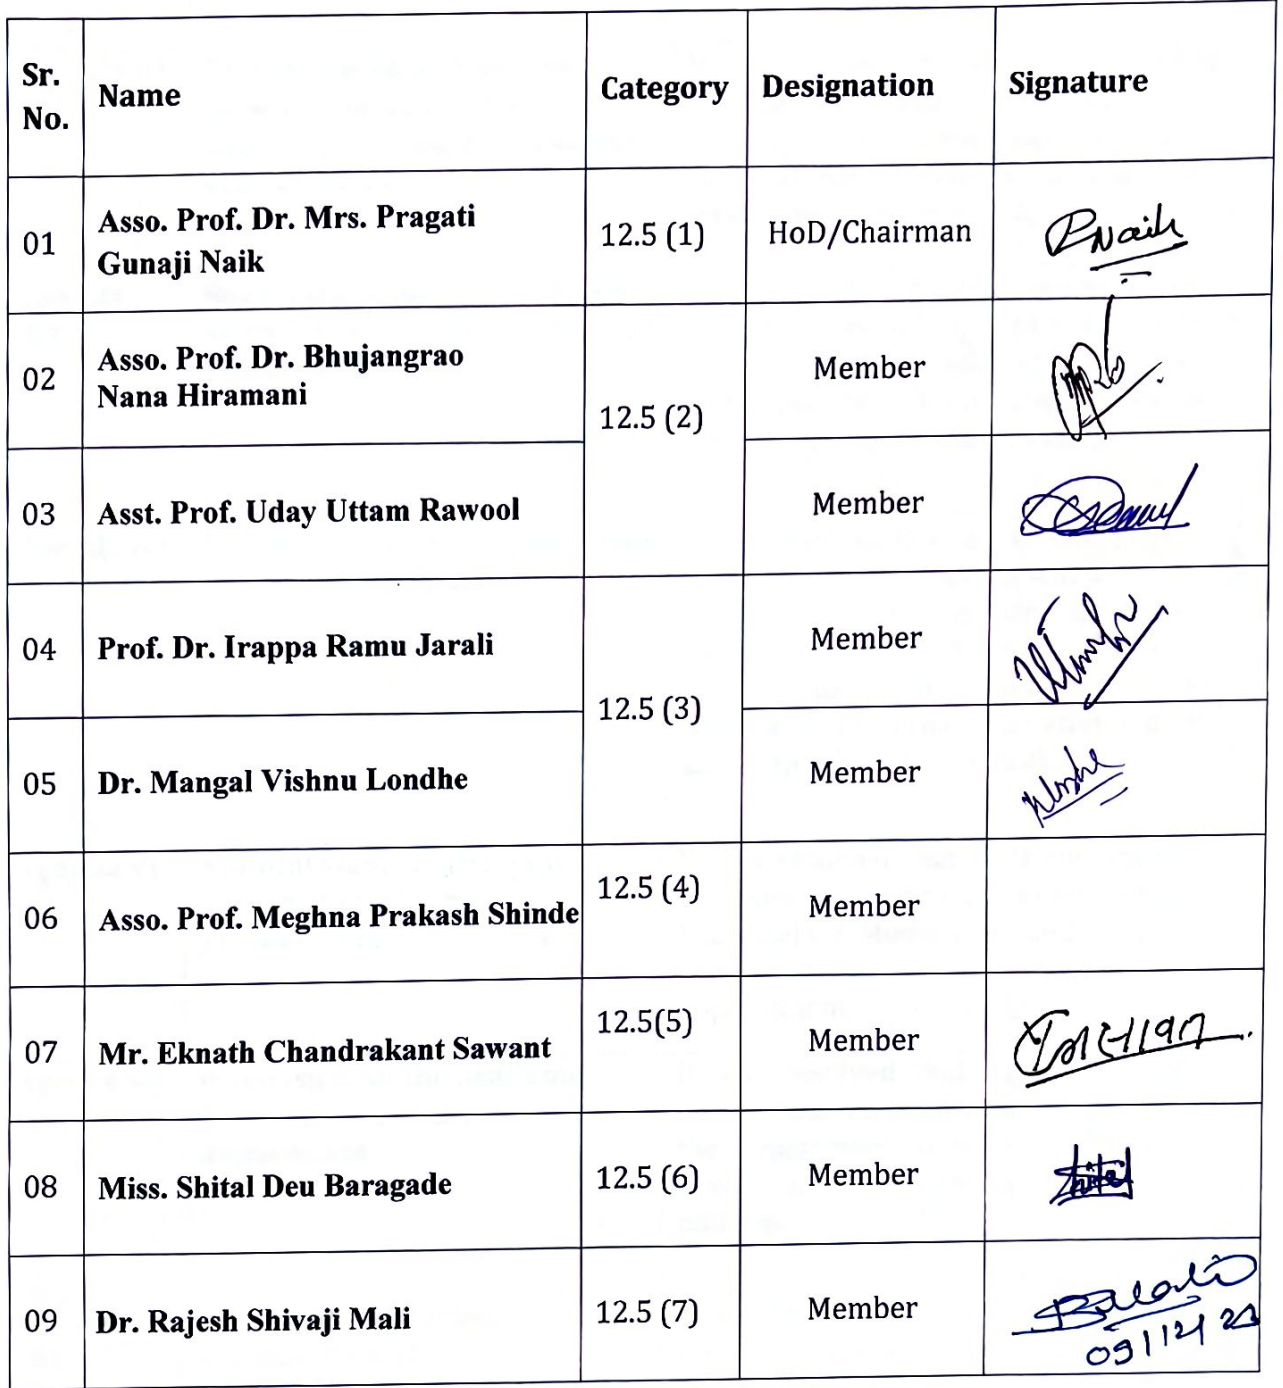 Sr.
No.
Name
Category
Designation
Signature
01
Asso. Prof. Dr. Mrs. Pragati
Gunaji Naik
12.5 (1)
HoD/Chairman
PNaik
02
Asso. Prof. Dr. Bhujangrao
Nana Hiramani
12.5 (2)
Member
03
Asst. Prof. Uday Uttam Rawool
Member
04
Prof. Dr. Irappa Ramu Jarali
12.5 (3)
Member
05
Dr. Mangal Vishnu Londhe
Member
06
Asso. Prof. Meghna Prakash Shinde
12.5 (4)
Member
07
Mr. Eknath Chandrakant Sawant
12.5(5)
Member
08
Miss. Shital Deu Baragade
12.5 (6)
Member
09
Dr. Rajesh Shivaji Mali
12.5 (7)
Member